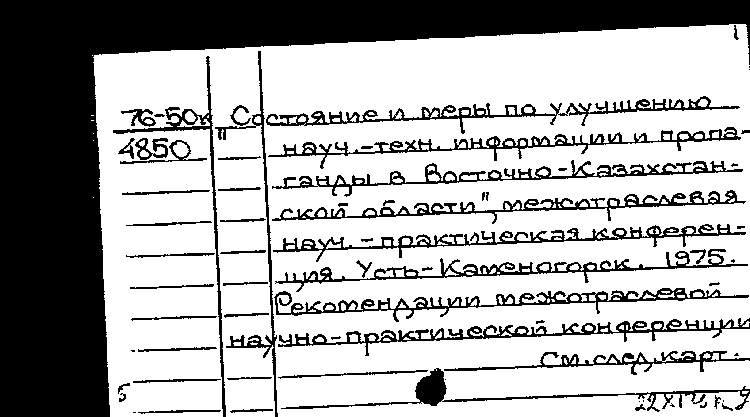 1
76-50к Состояние и меры по улучшению
4850 " науч.-техн. информации и пропа-
ганды в Восточно-Казахстан-
ской области", межотраслевая
науч.-практическая конферен-
ция. Усть-Каменогорск. 1975.
Рекомендации межотраслевой
научно-практической конференции
См. след. карт.
5